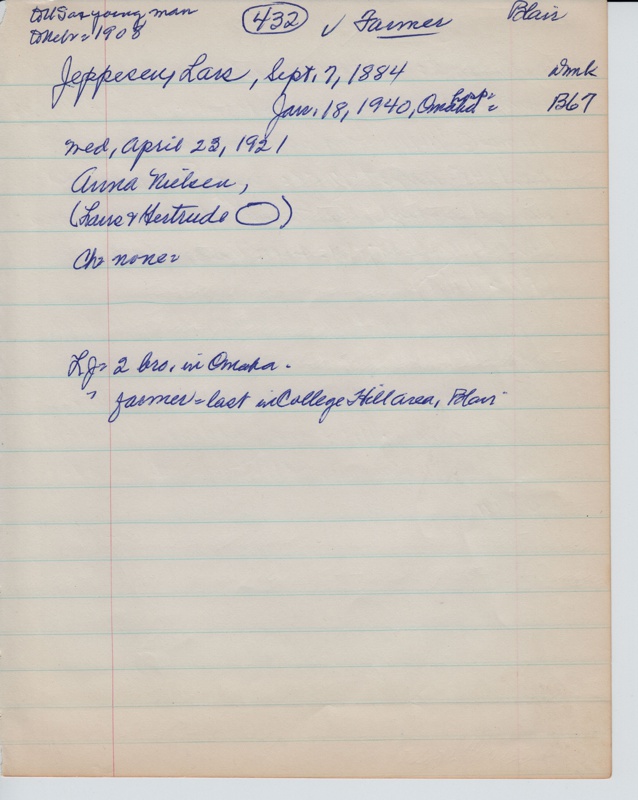 to US as young man
to Nebr = 1908
432
✓ Farmer
Blair
Jeppesen, Lars, Sept. 7, 1884 Dmk
Jan. 18, 1940, Omaha hosp = B67
Wed, April 23, 1921
Anna Nielsen,
(Lars & Gertrude )
Ch = none =
LJ = 2 bro, in Omaha -
" farmer = last in College Hill area, Blair